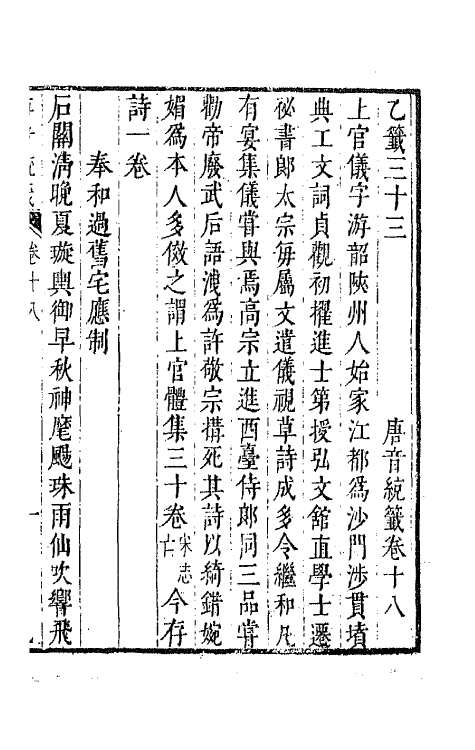 乙籤三十三　唐音統籤卷十八
上官儀字游韶陝州人始家江都爲沙門涉貫墳
典工文詞貞觀初擢進士第授弘文舘直學士遷
祕書郎太宗每屬文遣儀視草詩成多令繼和凡
有宴集儀嘗與焉高宗立進西臺侍郎同三品嘗
勸帝廢武后語洩爲許敬宗搆死其詩以綺錯婉
媚爲本人多傚之謂上官體集三十卷宋志亡今存
詩一卷
奉和過舊宅應制
石關淸晚夏璇輿御早秋神麾颺珠雨仙吹響飛
卷十八　一